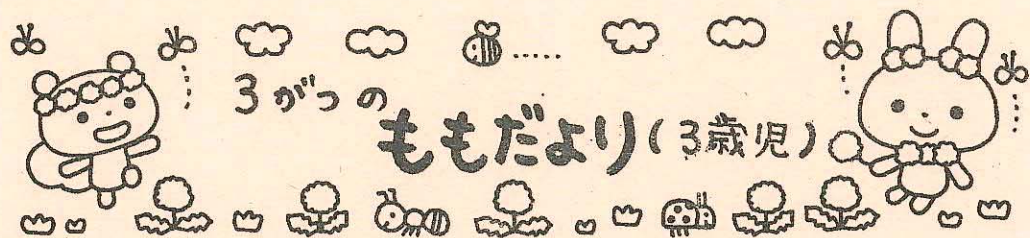 3がつの
ももだより(3歳児)